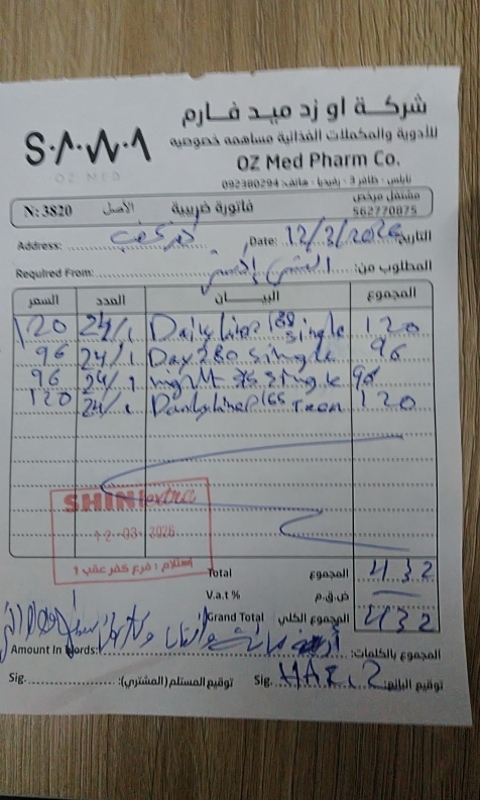 شركة او زد ميد فارم
للأدوية والمكملات الغذائية مساهمه خصوصيه
SAWA
OZ MED
OZ Med Pharm Co.
نابلس - ظافر 3 - رفيديا - هاتف: 092380294
N: 3820 الأصل فاتورة ضريبية مشتغل مرخص 562770875
Address: كفر عقب Date: 12/3/2026 التاريخ
Required From: المطلوب من:
السعر العدد البيـــان المجموع
120 24/1 Dailyliner single 120
96 24/1 Day 280 single 96
96 24/1 night single 96
120 24/1 120
SHINI extra
12-03-2026
إستلام : فرع كفر عقب 1
Total المجموع 432
V.a.t % ض.ق.م
Grand Total المجموع الكلي 432
Amount In Words: المجموع بالكلمات:
Sig. توقيع المستلم (المشتري): Sig. توقيع البائع: